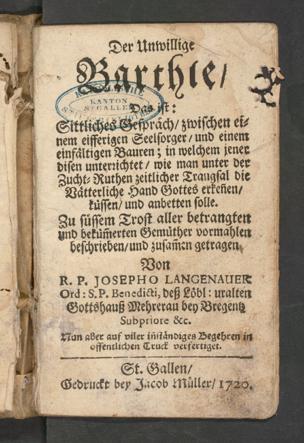 Der Unwillige
Barthle/
KANTON
ST GALLEN
Das ist:
Sittliches Gespräch/ zwischen ei-
nem eifferigen Seelsorger/ und einem
einfältigen Bauren; in welchem jener
disen unterrichtet/ wie man unter der
Zucht-Ruthen zeitlicher Traugsal die
Vätterliche Hand Gottes erkeñen/
küssen/ und anbetten solle.
Zu süssem Trost aller betrangten
und bekümerten Gemüther vormahlen
beschrieben/ und zusamen getragen
Von
R. P. JOSEPHO LANGENAUER
Ord: S. P. Benedicti, deß Löbl: uralten
Gottshauß Mehrerau bey Bregentz
Subpriore &c.
Nun aber auf viler inständiges Begehren in
offentlichen Truck verfertiget.
St. Gallen/
Gedruckt bey Jacob Müller/ 1720.